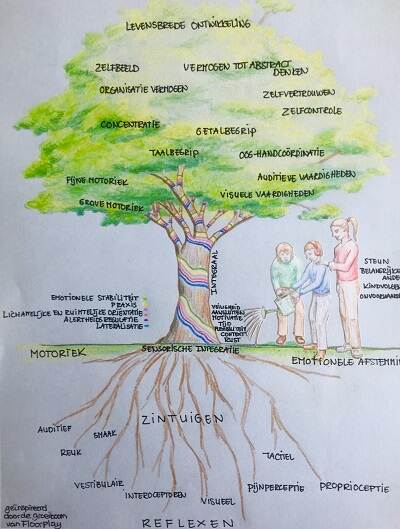 LEVENSBREDE ONTWIKKELING
ZELFBEELD
VERMOGEN TOT ABSTRACT
DENKEN
ORGANISATIE VERMOGEN
ZELFVERTROUWEN
ZELFCONTROLE
CONCENTRATIE
GETALBEGRIP
TAALBEGRIP
OOG-HANDCOÖRDINATIE
FIJNE MOTORIEK
AUDITIEVE VAARDIGHEDEN
VISUELE VAARDIGHEDEN
GROVE MOTORIEK
INTEGRAAL
STEUN
BELANGRIJKE
ANDE
KINDVOLGE
ONVOORWAA
EMOTIONELE STABILITEIT
PRAXIS
LICHAMELIJKE EN RUIMTELIJKE ORIENTATIE
ALERTHEIDSREGULATIE
LATERALISATIE
VEILIGHEID
AANSLUITEN
MOTIVATIE
TIJD
CONTEXT
RUST
MOTORIEK
SENSORISCHE INTEGRATIE
EMOTIONELE AFSTEMMI
ZINTUIGEN
AUDITIEF
SMAAK
REUK
TACTIEL
VESTIBULAIR
INTEROCEPTOREN
VISUEEL
PIJNPERCEPTIE
PROPRIOCEPTIE
geïnspireerd
door de groeiboom
van FloorPlay
REFLEXEN